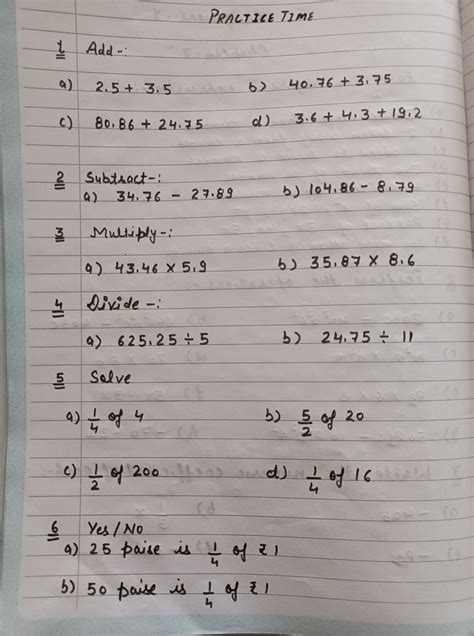 PRACTICE TIME
1 Add -:
a) 2.5 + 3.5 b) 40.76 + 3.75
c) 80.86 + 24.75 d) 3.6 + 4.3 + 19.2
2 Subtract -:
a) 34.76 - 27.89 b) 104.86 - 8.79
3 Multiply -:
a) 43.46 × 5.9 b) 35.87 × 8.6
4 Divide -:
a) 625.25 ÷ 5 b) 24.75 ÷ 11
5 Solve
a) 1/4 of 4 b) 5/2 of 20
c) 1/2 of 200 d) 1/4 of 16
6 Yes/No
a) 25 paise is 1/4 of ₹1
b) 50 paise is 1/4 of ₹1